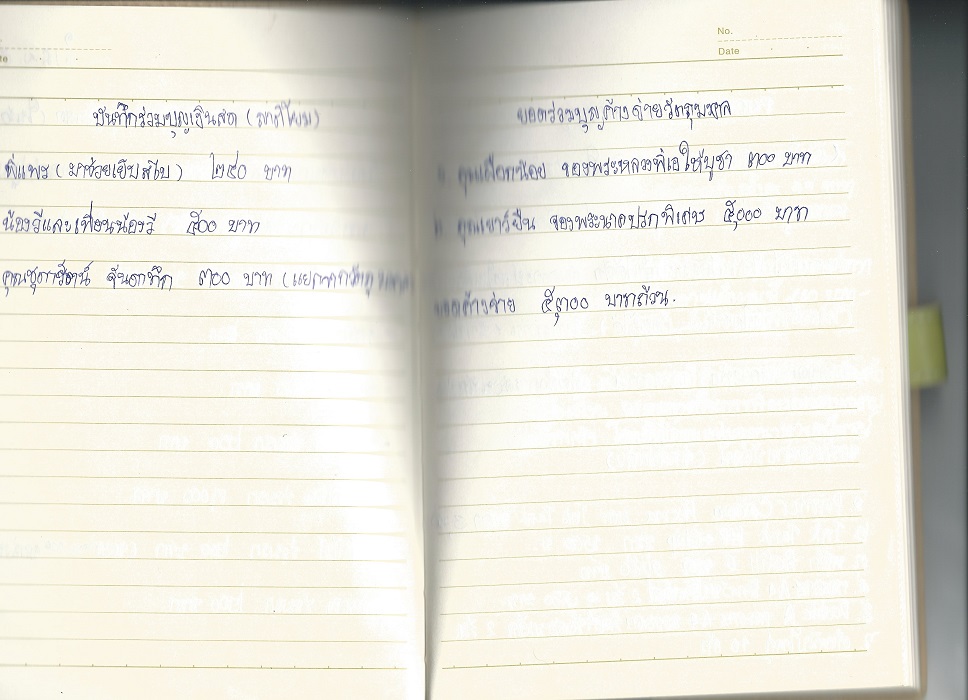 บันทึกร่วมบุญเงินสด
พี่แพร (มาช่วยเย็บสไบ) ๒๕๐ บาท
น้องวีและเพื่อนน้องวี ๕๐๐ บาท
คุณชุดารัตน์ จันดาทึก ๓๐๐ บาท
No.
Date
ยอดร่วมบุญค้างจ่ายวัตถุมงคล
คุณเผือกน้อย จองพระหลวงพี่เอให้บูชา ๓๐๐ บาท
คุณเยาว์ยืน จองพระนาคปรกพิเศษ ๕,๐๐๐ บาท
ยอดค้างจ่าย ๕,๓๐๐ บาทถ้วน.